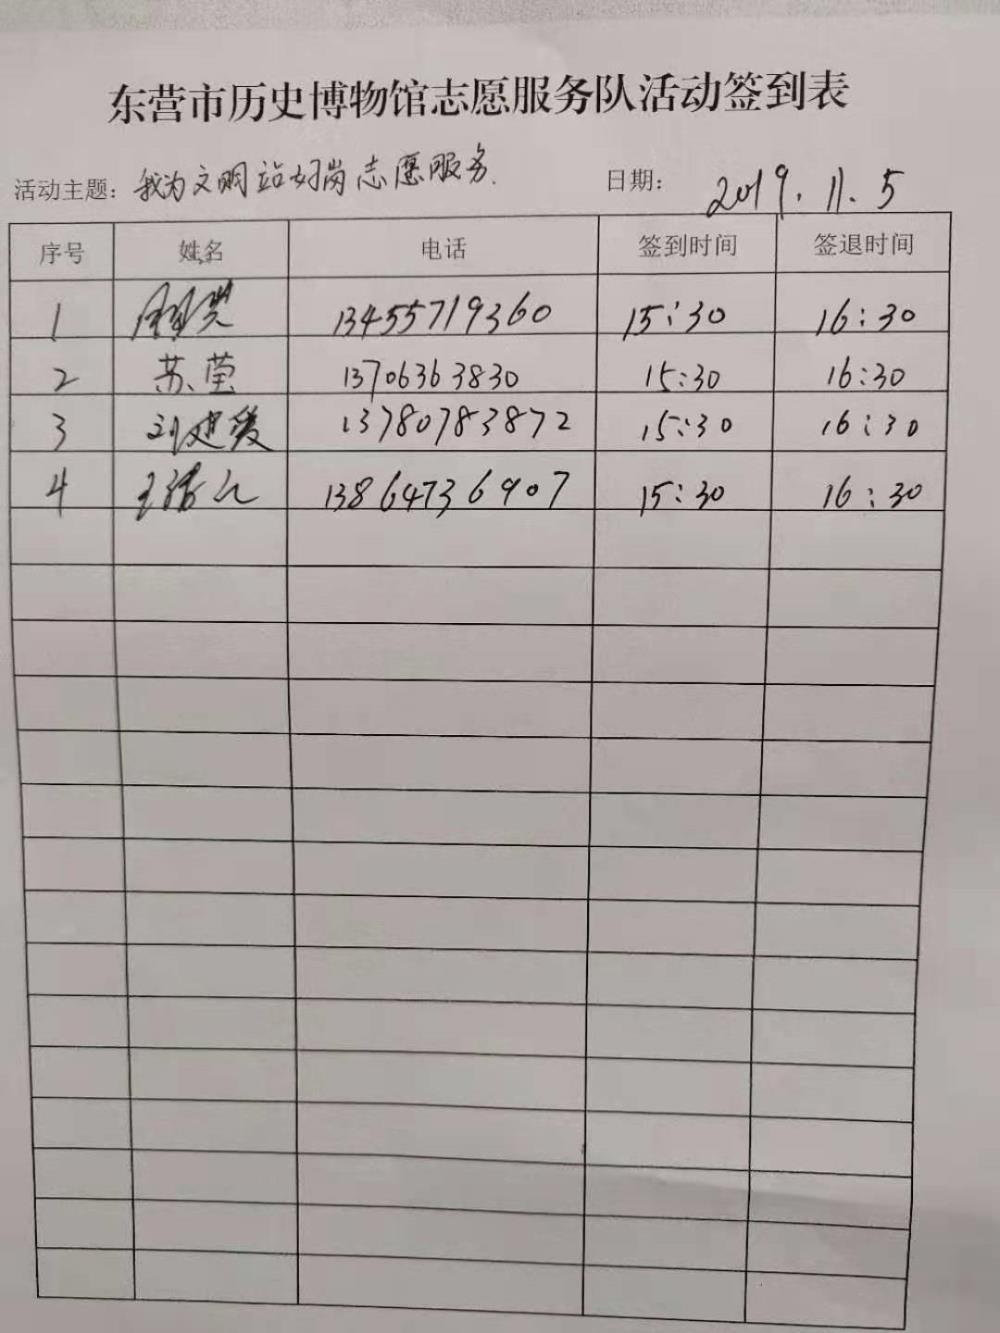 东营市历史博物馆志愿服务队活动签到表
活动主题：我为文明站好岗志愿服务. 日期： 2019.11.5
序号 姓名 电话 签到时间 签退时间
1 13455719360 15:30 16:30
2 苏莹 13706363830 15:30 16:30
3 刘建爱 13780783872 15:30 16:30
4 13864736907 15:30 16:30